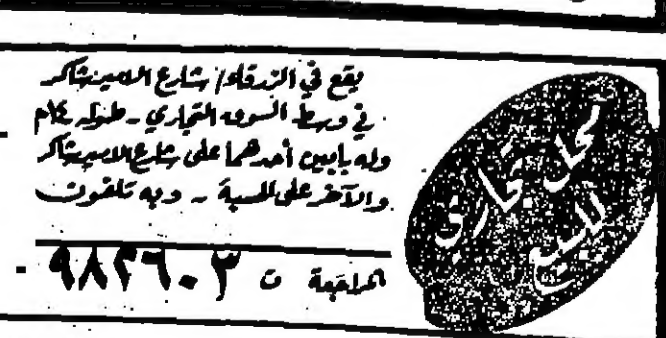 محل تجاري
للبيع
يقع في الزرقاء/ شارع الامير شاكر
في وسط السوق التجاري - طوله
وله بابين أحدهما على شارع الامير شاكر
والآخر على السبة - وبه تلفون
المراجعة ت ٩٨٢٦٠٣